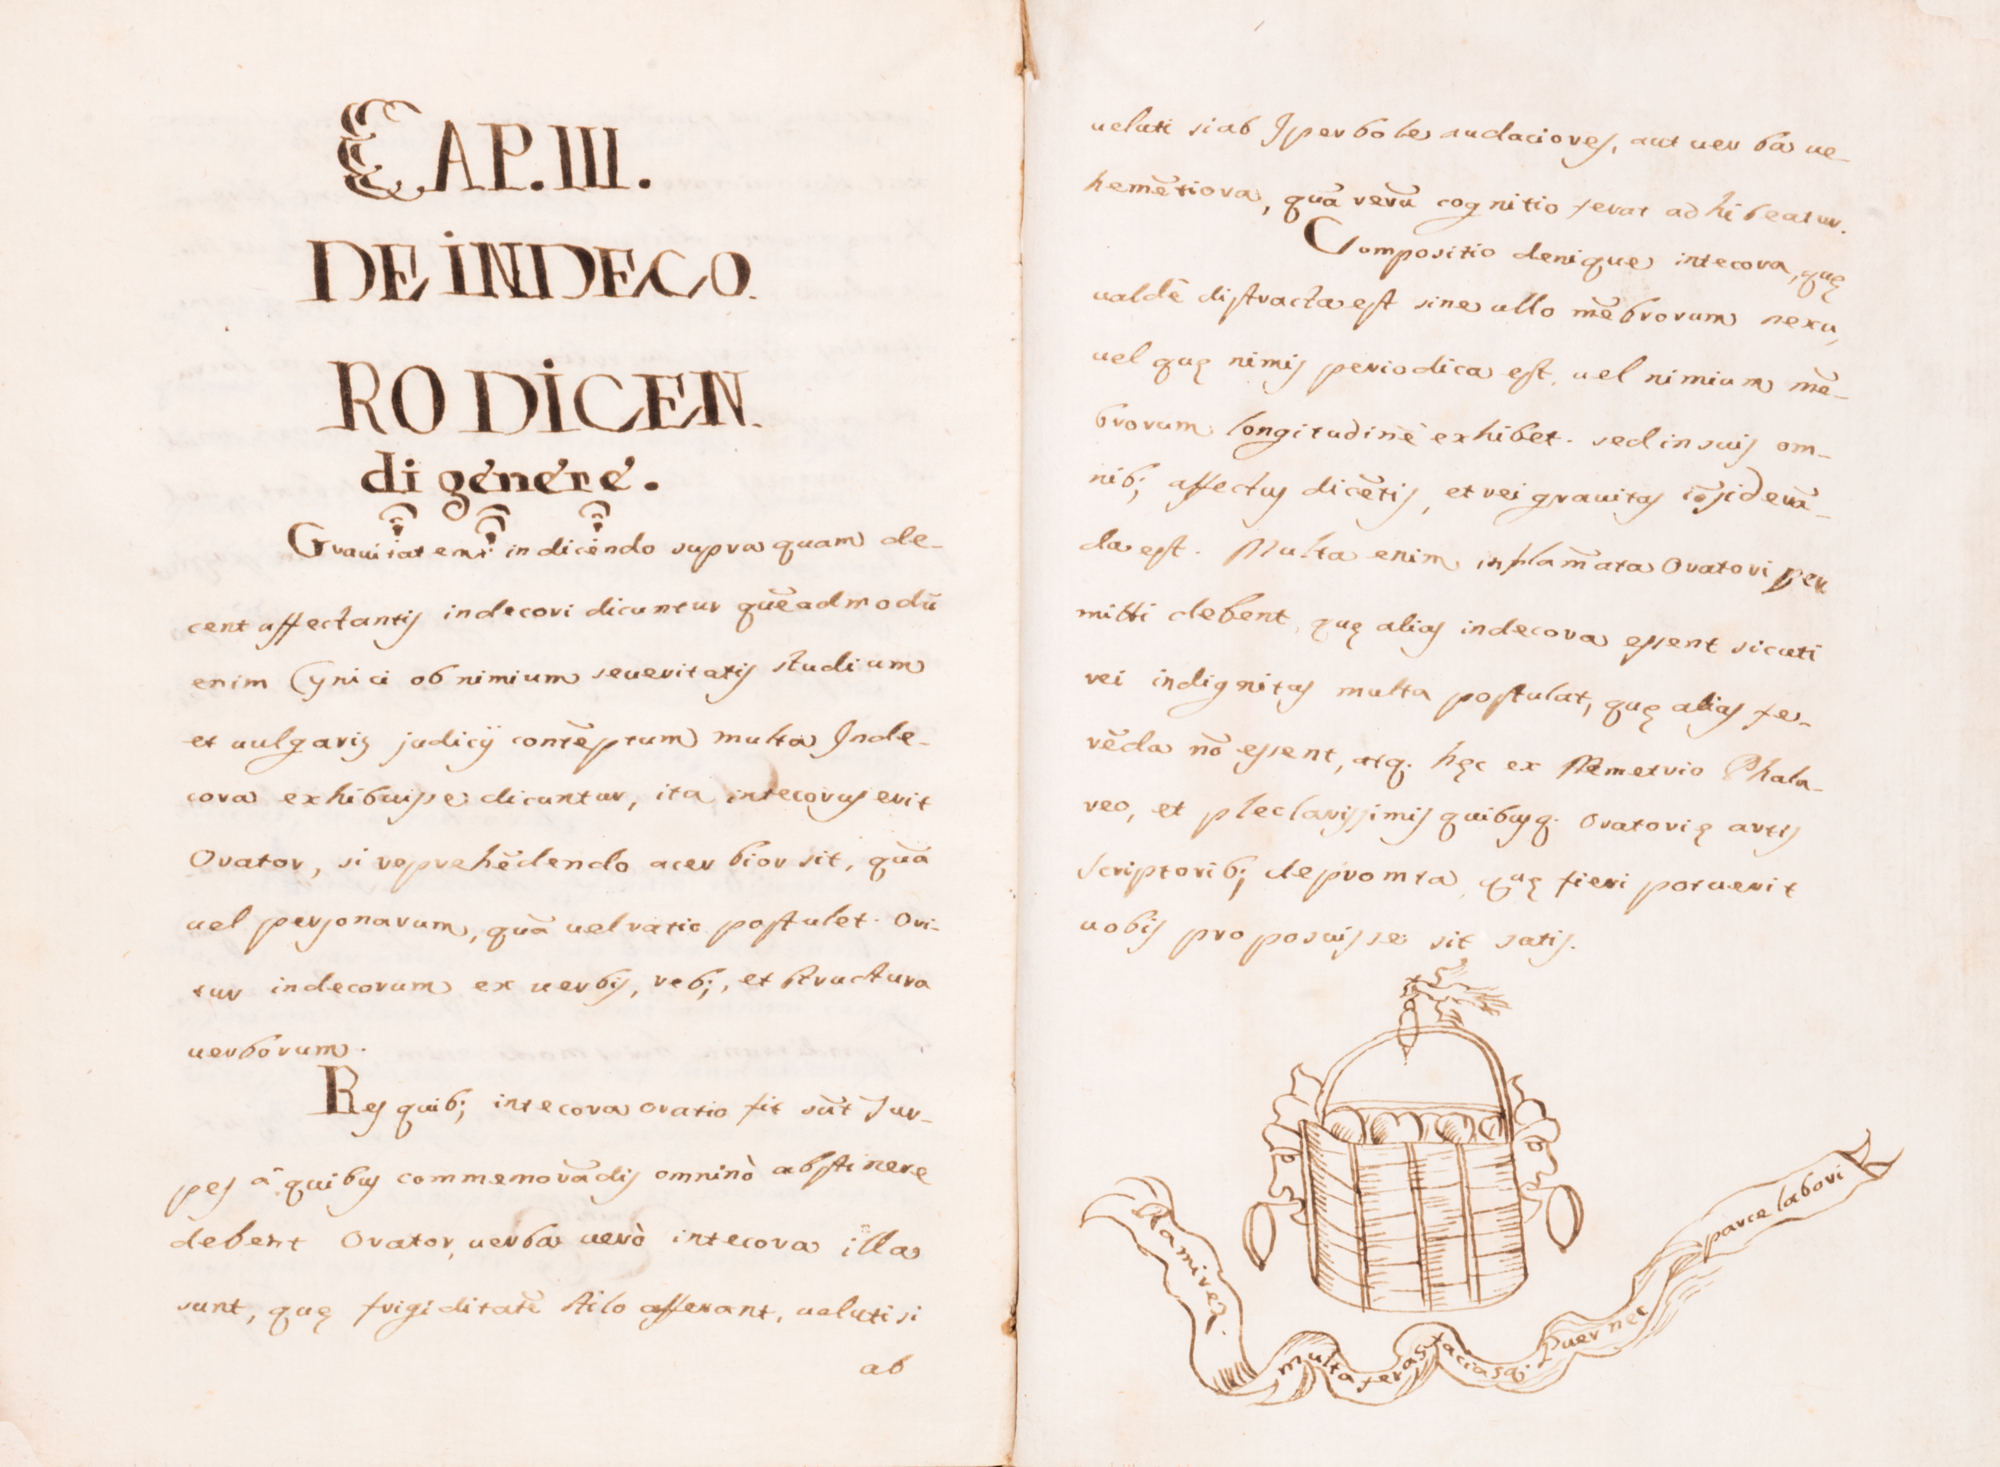 CAP. III.
DE INDECO.
RO DICEN.
di genere.
Gravitatem in dicendo supra quam de-
cent affectantis indecori dicuntur quẽadmodũ
enim Cynici ob nimium severitatis studium
et uulgaris judicij contẽptum multa Inde-
cora exhibuisse dicuntur, ita intecorus erit
Orator, si reprehẽdendo acerbior sit, quã
uel personarum, quã uel ratio postulet. Ori-
tur indecorum ex uerbis, reb;, et structura
uerborum.
Res quib; intecora oratio fit sũt Tur-
pes â quibus commemorãdis omninò abstinere
debent Orator, uerba uerò intecora illa
sunt, quę frigiditatẽ stilo afferant, ueluti si
ab
ueluti si ab Iperbole audaciores, aut uerba ue-
hemẽtiora, quã rerũ cognitio ferat adhibeatur.
Compositio denique intecora, quę
ualdẽ distracta est sine ullo mẽbrorum nexu,
uel quę nimis periodica est, uel nimium mẽ-
brorum longitudinẽ exhibet. sed in suis om-
nib; affectus dicẽtis, et rei grauitas cõsiderã-
da est. Multa enim inflam̃ata Oratori per
mitti debent, quę alias indecora essent sicuti
rei indignitas multa postulat, quę alias fe-
rẽda nõ essent, atq. hęc ex Demetrio Phala-
reo, et pleclarissimis quibusq. Oratorię artis
scriptorib; depromta, quę fieri potuerit
uobis proposuisse sit satis.
multa feras faciasq; Puer nec
parce labori